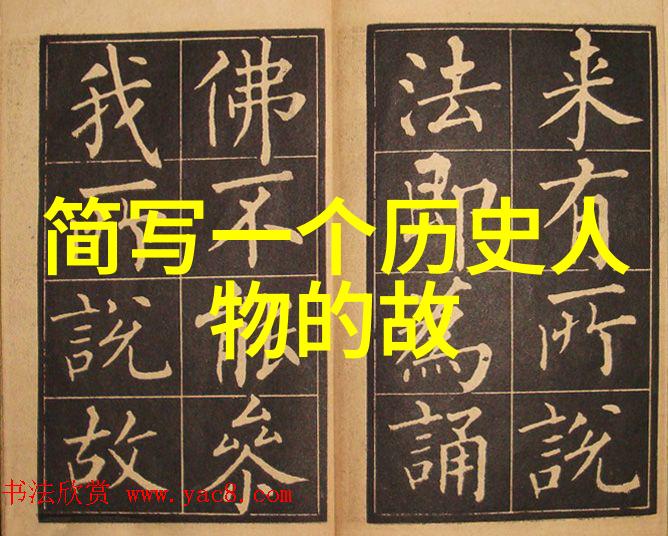 来有所說
法即為誦
佛不能叅
我所說故
简写一个历史人
物的故
书法欣赏 www.yac8.com